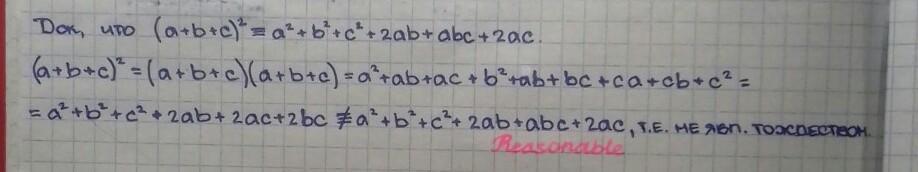 Док, что (a+b+c)² = a²+b²+c²+2ab+abc+2ac.
(a+b+c)² = (a+b+c)(a+b+c) = a²+ab+ac+b²+ab+bc+ca+cb+c² =
= a²+b²+c²+2ab+2ac+2bc ≢ a²+b²+c²+2ab+abc+2ac, т.е. не явл. тождеством.
Reasonable